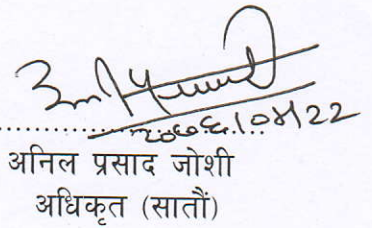 २०७६/०४/22
अनिल प्रसाद जोशी
अधिकृत (सातौं)